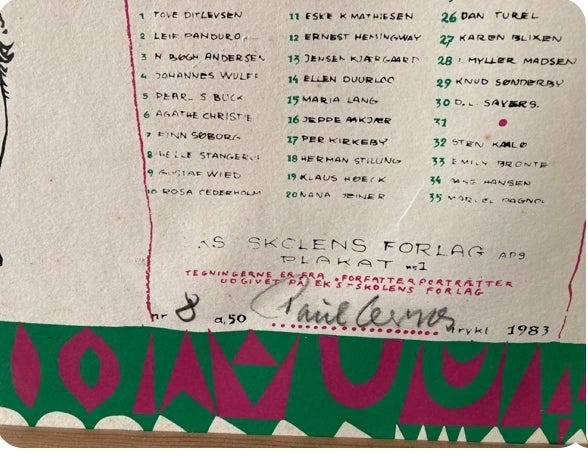 1 TOVE DITLEVSEN
2 LEIF PANDURO
3 N BØGH ANDERSEN
4 JOHANNES WULFF
5 PEARL S BUCK
6 AGATHE CHRISTIE
7 FINN SØBORG
8 HELLE STANGERUP
9 GUSTAF WIED
10 ROSA CEDERHOLM
11 ESKE K MATHIESEN
12 ERNEST HEMINGWAY
13 JENSEN KJÆRGAARD
14 ELLEN DUURLOO
15 MARIA LANG
16 JEPPE AAKJÆR
17 PER KIRKEBY
18 HERMAN STILLING
19 KLAUS HØECK
20 NANA
26 DAN TUREL
27 KAREN BLIXEN
28 I. MYLLER MADSEN
29 KNUD SØNDERBY
30 D.L. SAYERS.
31
32 STEN KAALØ
33 EMILY BRONTE
34 HANSEN
35 MARCEL PAGNOL
KS SKOLENS FORLAG APS
PLAKAT nr 1
TEGNINGERNE ER FRA "FORFATTERPORTRÆTTER
UDGIVET PÅ EKS-SKOLENS FORLAG
nr 8 a, 50 trykt 1983